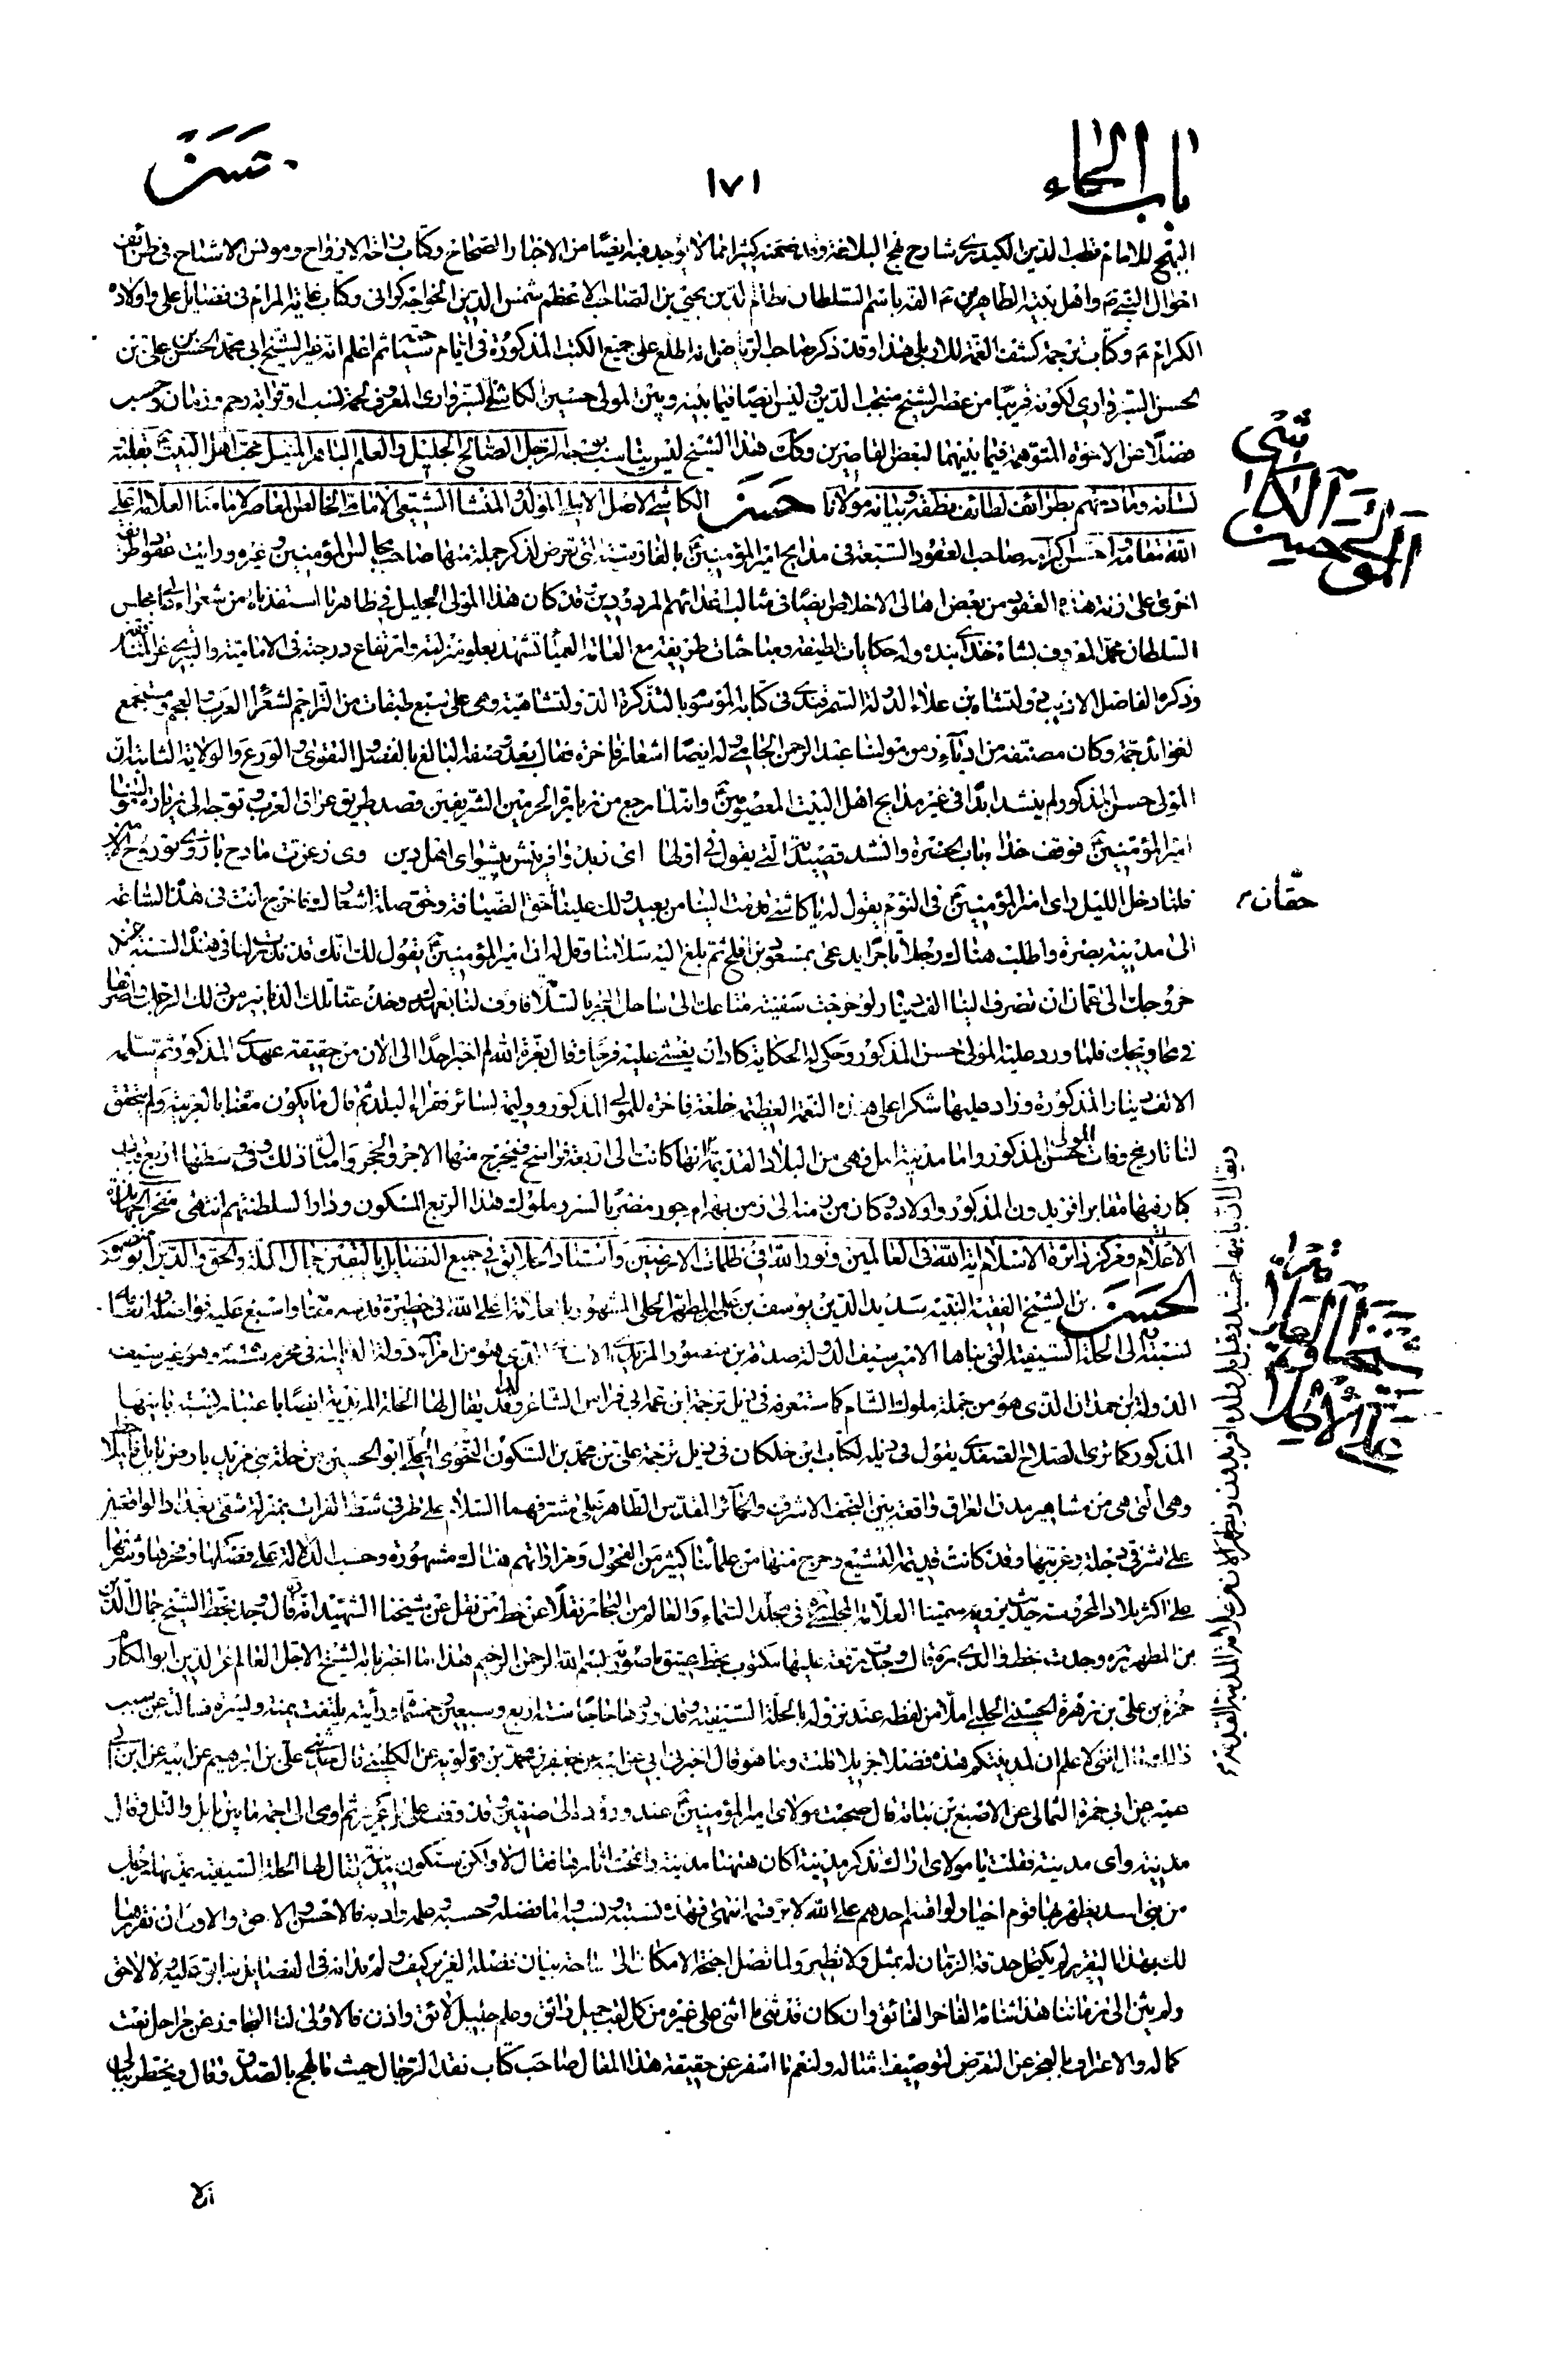 باب الحاء
١٧١
حسن
البهج للامام قطب الدين الكيدرى شارح نهج البلاغة وقد ضمنه كثيرا مما لا يوجد فيه ايضا من الاخبار الصحاح وكتاب راحة الارواح ومونس الاشباح فى طرائف
احوال النبى ص واهل بيته الطاهرين ع الفه باسم السلطان نظام الدين يحيى بن الصاحب الاعظم شمس الدين الخواجه كرابى وكتاب غاية المرام فى فضايل على واولاده
الكرام ع وكتاب ترجمة كشف الغمة للاربلى هذا وقد ذكر صاحب الرياض انه اطلع على جميع الكتب المذكورة فى ايام ثم اعلم انه غير الشيخ ابى محمد الحسن بن على بن
الحسن السبزوارى لكونه قريبا من عصر الشيخ منتجب الدين وليس ايضا فيما بينه وبين المولى حسين الكاشفى السبزوارى المعروف لحمة نسب او قرابة رحم وزمان وحسب
فضلا عن الاخوة المتوهمة فيما بينهما لبعض القاصرين وكان هذا الشيخ ليس يناسب الرجل الصالح الجليل والعالم الماهر النبيل محب اهل البيت بقلبه
لسانه ومادحهم بطرائف لطائف نطقه وبيانه مولانا حسن الكاشى الاصل الاملى المولد والمنشا الشيعى الامامى المعاصر لامامنا العلامة اعلى
الله مقامه واحسن اكرامه صاحب العقود السبعة فى مدايح امير المؤمنين ع بالفارسية التى تعرض لذكر جملة منها صاحب مجالس المؤمنين وغيره ورايت عقود طرائف
اخرى على زنة هذه العقود من بعض اهالى الاخلاص ايضا فى مثالب اعدائهم المردودين وقد كان هذا المولى الجليل فى ظاهر ما استفدناه من شعراء مجلس
السلطان محمد المعروف بشاه خدابنده وله حكايات لطيفة ومباحثات طريفة مع العامة العمياء تشهد بعلو منزلته وارتفاع درجته فى الامامية
وذكره الفاضل الاديب دولتشاه بن علاء الدولة السمرقندى فى كتابه الموسوم بالتذكرة الدولتشاهية وهى على سبع طبقات من التراجم لشعراء العرب والعجم ومستجمع
لفوائد جمة وكان مصنفه من ادباء زمن مولينا عبد الرحمن الجامى وله ايضا اشعار فاخرة فقال بعد وصفه البالغ بالفضل والتقوى والورع والولاية الثابتة ان
المولى حسن المذكور لم ينشد ابدا فى غير مدايح اهل البيت المعصومين ع وانه لما رجع من زيارة الحرمين الشريفين قصد طريق عراق العرب وتوجه الى زيارة
امير المؤمنين ع فوقف حذاء باب الحضرة وانشد قصيدته التى يقول فى اولها اى زبدو آفرينش پيشواى اهل دين وى زعزت مادح بازوى تو روح الامين
فلما دخل الليل راى امير المؤمنين ع فى النوم يقول له يا كاشى قدمت الينا من بعيد ولك علينا حق الضيافة وحق صلة اشعارك فاخرج انت فى هذه الساعة
الى مدينة بصرة واطلب هناك رجلا تاجرا يدعى بمسعود بن افلح ثم بلغ اليه سلامنا وقل له ان امير المؤمنين ع يقول لك انك قد نذرت لنا فى هذه السنة عند
خروجك الى عمان ان تصرف الينا الف دينار لو خرجت سفينة متاعك الى ساحل البحر بالسلامة فاوف لنا بعهدك وخذ عنا تلك الدنانير من ذلك الرجل واصرفها
فى محاويجك فلما ورد عليه المولى حسن المذكور وحكى له الحكاية كاد ان يغشى عليه فرحا وقال بعزة الله لم اخبر احدا الى الان من حقيقة عهدى المذكور ثم سلمه
الالف دينار المذكورة وزاد عليها شكرا على هذه النعمة العظيمة خلعة فاخرة للمولى المذكور ووليمة لسائر فقراء البلد ثم قال ما يكون معناه بالعربية ولم يتحقق
لنا تاريخ وفات المولى حسن المذكور واما مدينة امل فهى من البلاد القديمة انها كانت الى اربعة فراسخ فيخرج منها الاجر والحجر وامثال ذلك وفى وسطها اربع قباب
كبار فيها مقابر افريدون المذكور واولاده كان من زمنه الى زمن بهرام جور مضربا لسرر ملوك هذا الربع المسكون ودارا لسلطنتهم انتهى مفخر الجهابذة
الاعلام ومركز دائرة الاسلام اية الله فى العالمين ونور الله فى ظلمات الارضين واستاد الخلايق فى جميع الفضايل باليقين جمال الملة والحق والدين ابو منصور
الحسن بن الشيخ الفقيه النبيه سديد الدين يوسف بن على المطهر الحلى المشهور بالعلامة اعلى الله فى حظيرة قدسه مقامه واسبغ عليه فواضله وانعامه
نسبته الى الحلة السيفية التى بناها الامير سيف الدولة صدقة بن منصور المزيدى الاسدى الذى هو من امراء دولة الديالمة فى محرم سنة وهو غير سيف
الدولة بن حمدان الذى هو من جملة ملوك الشام كما ستعرفه فى ذيل ترجمة ابن عمه ابى فراس الشاعر وقد يقال لها الحلة المزيدية ايضا باعتبار نسبته بانيها
المذكور كما ترى الصلاح الصفدى يقول فى ذيله لكتاب ابن خلكان فى ذيل ترجمة على بن محمد بن السكون النحوى الحلى ابو الحسين من حلة بنى مزيد بارض بابل
وهى التى هى من مشاهير مدن العراق واقعة بين النجف الاشرف والحائر المقدس الطاهر على مشرفهما السلام على طرفى شط الفرات بمنزلة شقى بغداد الواقعين
على شرقى دجلة وغربيها وقد كانت قديمة التشيع وخرج منها من علمائنا كثير من الفحول ومزاراتهم هناك مشهورة وحسب الدلالة على فضلها وفخرها وشرفها
على اكثر بلاد المحروسة حديث يرويه سمينا العلامة المجلسى ره فى مجلد السماء والعالم من البحار نقلا عن خط من نقل عن شيخنا الشهيد انه قال وجد بخط الشيخ جمال الدين
بن المطهر ره وجدت بخط والدى ره قال وجدت رقعة عليها مكتوب بخط عتيق ما صورته بسم الله الرحمن الرحيم هذا ما اخبرنا به الشيخ الاجل العالم عز الدين ابو المكارم
حمزة بن على بن زهرة الحسينى الحلبى املاء من لفظه عند نزوله بالحلة السيفية وقد وردها حاجا سنة اربع وسبعين وخمسمائة ورأيته يلتفت يمنة ويسرة فسالته عن سبب
ذلك قال اننى لاعلم ان لمدينتكم هذه فضلا جزيلا قلت وما هو قال اخبرنى ابى عن ابيه عن جعفر بن محمد بن قولويه عن الكلينى قال حدثنى على بن ابرهيم عن ابيه عن ابن ابى
عمير عن ابى حمزة الثمالى عن الاصبغ بن نباتة قال صحبت مولاى امير المؤمنين ع عند وروده الى صفين وقد وقف على تل عرير ثم اومى الى اجمة ما بين بابل والتل وقال
مدينة واى مدينة فقلت يا مولاى اراك تذكر مدينة اكان ههنا مدينة وانمحت اثارها فقال لا ولكن ستكون مدينة يقال لها الحلة السيفية يمدنها رجل
من بنى اسد يظهر بها قوم اخيار لو اقسم احدهم على الله لابر قسمه انتهى فهذه نسبته ونسبه واما فضله وحسبه وعلمه وادبه فالاحسن والاحق والاولى ان نقرر ها
لك بهذا التقرير لم يكتحل حدقة الزمان له بمثل ولا نظير ولما تصل اجنحة الامكان الى ساحة بيان فضله الغزير كيف ولم يدانه فى الفضايل سابق عليه ولا لاحق
ولم يثن الى زماننا هذا ثنائه الفاخر الفائق وان كان قد ثنى ما اثنى على غيره من كل لقب جميل رائق وعلم جليل لائق واذن فالاولى لنا التجاوز عن مراحل نعت
كماله والاعتراف بالعجز عن التعرض لتوصيف امثاله ولنعم ما اسفر عن حقيقة هذا المقال صاحب كتاب نقد الرجال حيث ما لهج بالصدق وقال ويخطر ببالى
المولى حسن الكاشى
حقان